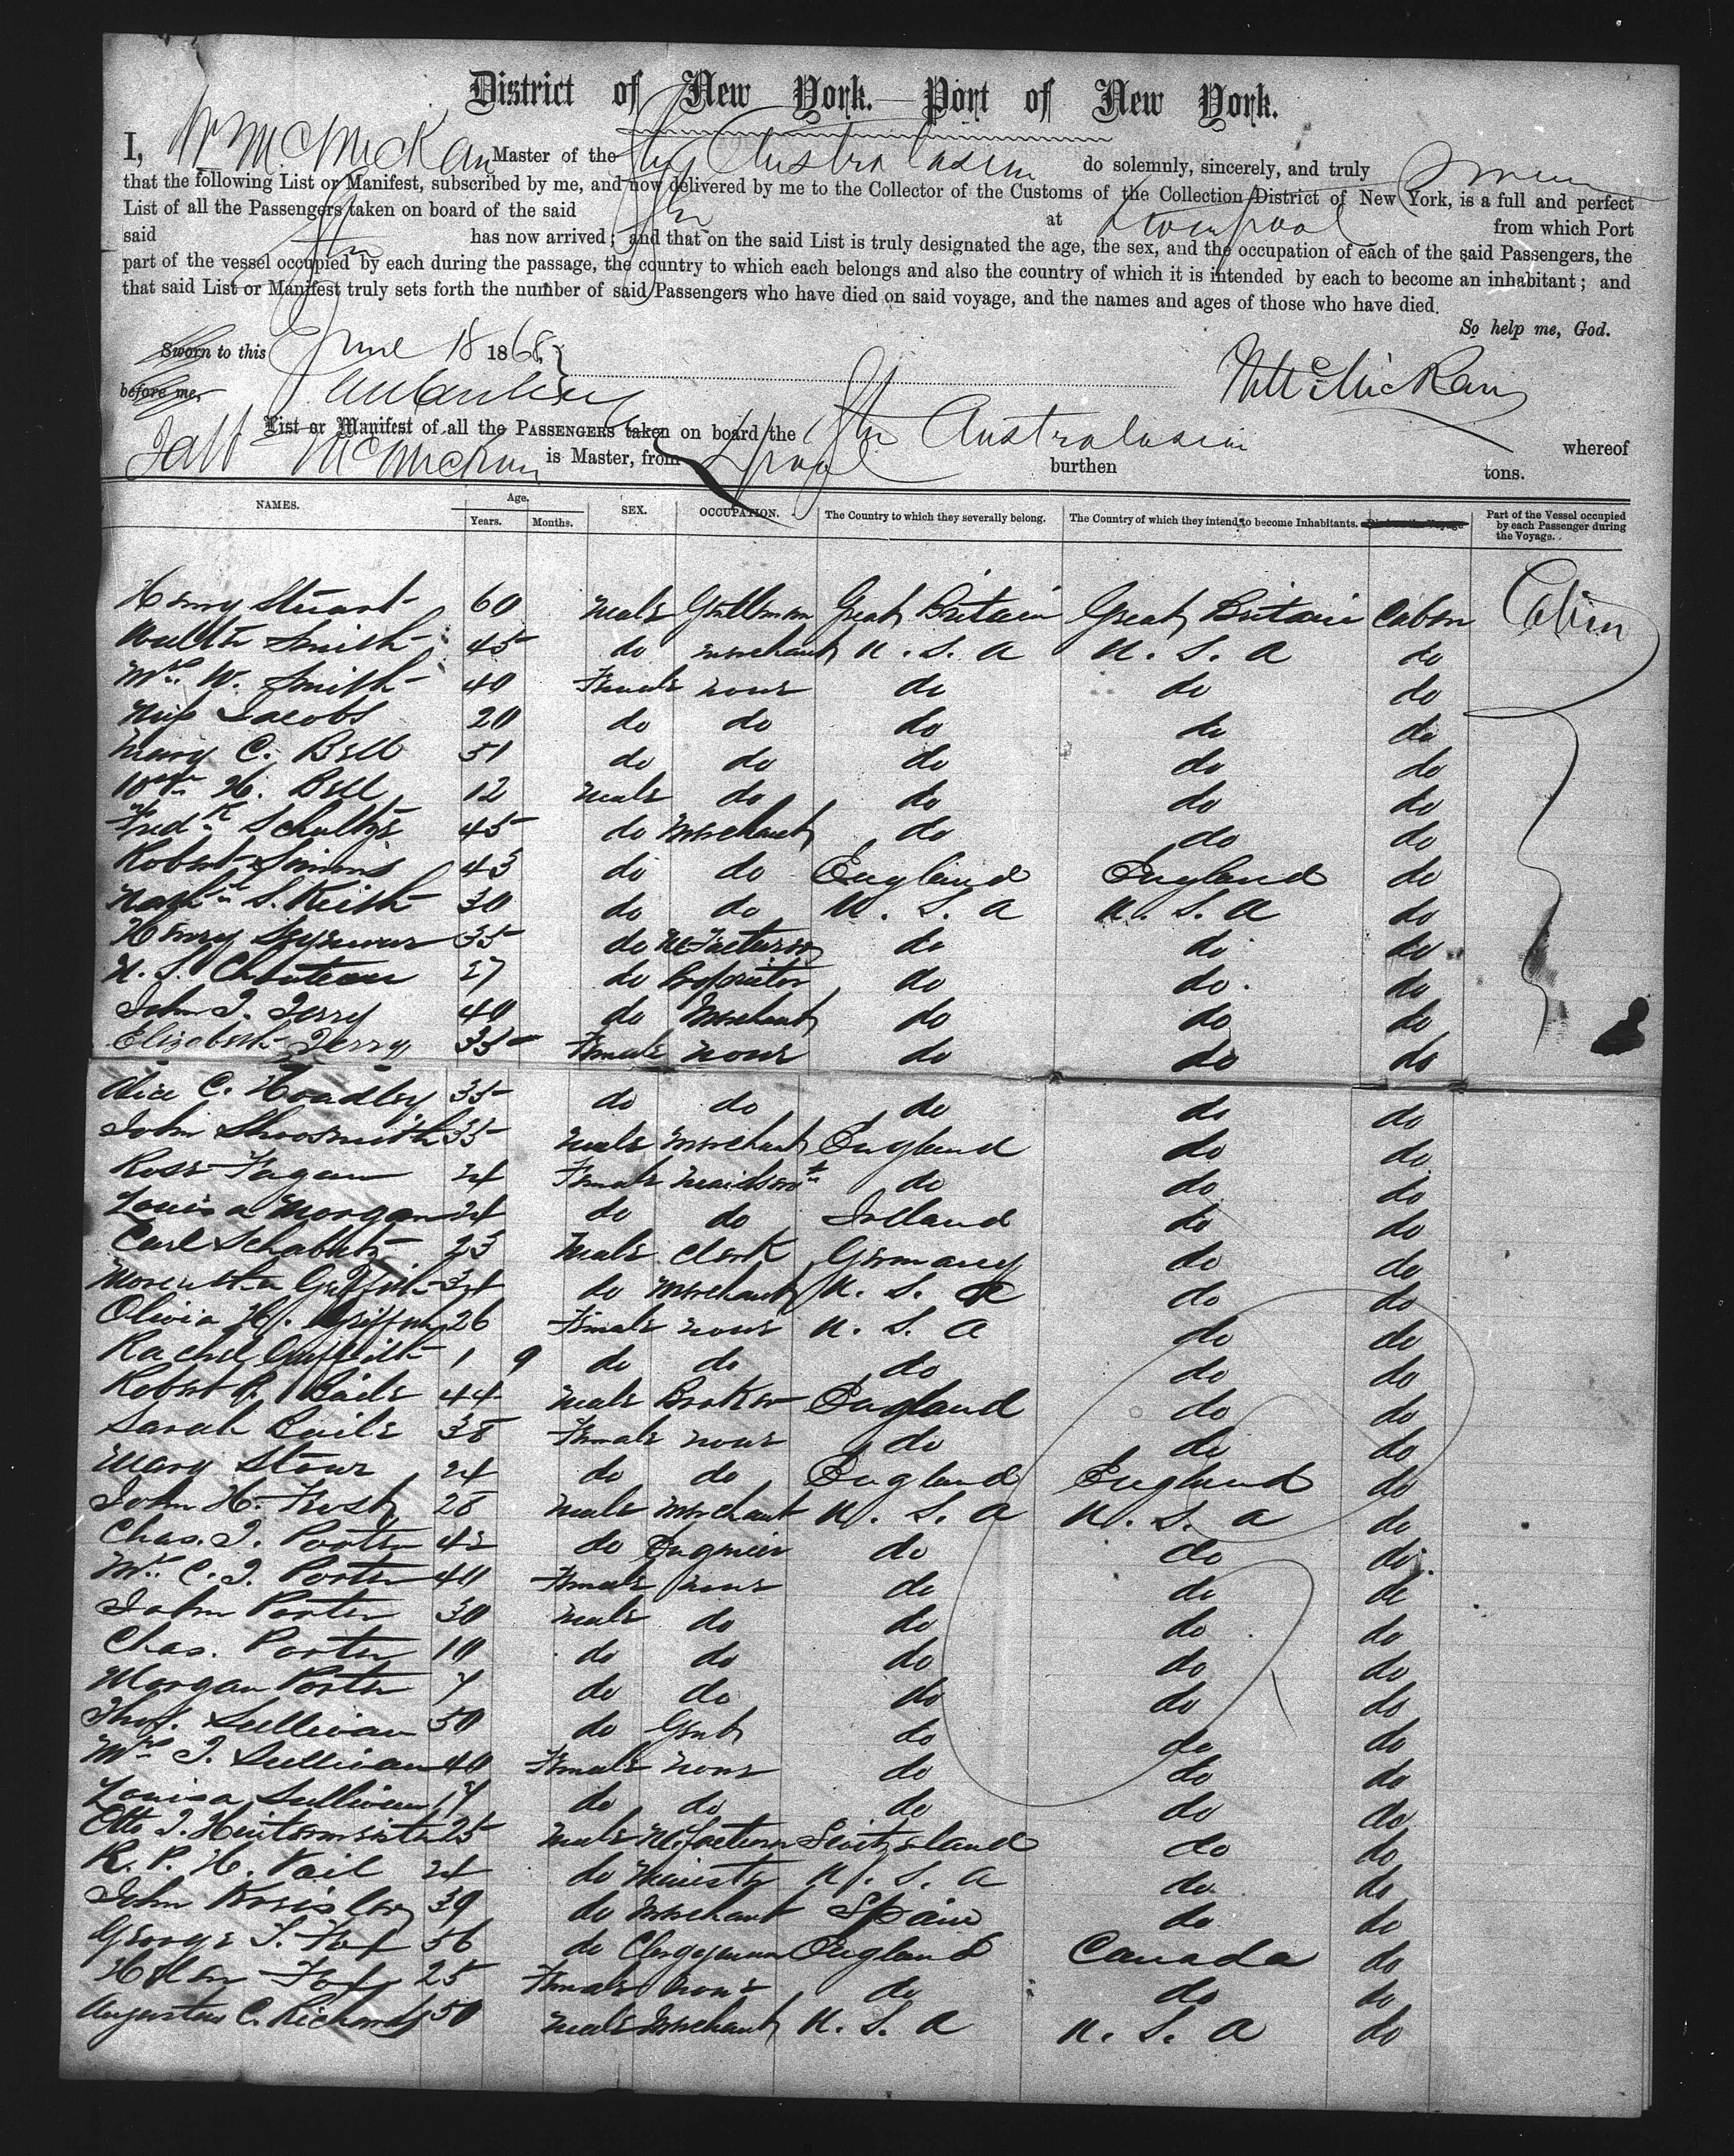 District of New York. — Port of New York.
I, W McMickan Master of the Str Australasian do solemnly, sincerely, and truly swear
that the following List or Manifest, subscribed by me, and now delivered by me to the Collector of the Customs of the Collection District of New York, is a full and perfect
List of all the Passengers taken on board of the said Str at Liverpool from which Port
said Str has now arrived; and that on the said List is truly designated the age, the sex, and the occupation of each of the said Passengers, the
part of the vessel occupied by each during the passage, the country to which each belongs and also the country of which it is intended by each to become an inhabitant; and
that said List or Manifest truly sets forth the number of said Passengers who have died on said voyage, and the names and ages of those who have died.
So help me, God.
Sworn to this June 18 1868
before me, W McMickan
List or Manifest of all the PASSENGERS taken on board the Str Australasian whereof
McMickan is Master, from Lpool burthen tons.
NAMES. Age. Years. Months. SEX. OCCUPATION. The Country to which they severally belong. The Country of which they intend to become Inhabitants. Died on the Voyage Part of the Vessel occupied by each Passenger during the Voyage.
Henry Stuart 60 Male Gentleman Great Britain Great Britain Cabin Cabin
Walter Smith 45 do Merchant U. S. A U. S. A do
Mrs. W. Smith 40 Female none do do do
Miss Jacobs 20 do do do do do
Mary C. Bell 51 do do do do do
Wm H. Bell 12 Male do do do do
Fredk Schultze 45 do Merchant do do do
Robert Simons 43 do do England England do
Nathl S. Keith 30 do do U. S. A U. S. A do
Henry Seymour 35 do Mfacturer do do do
N. S. Chouteau 27 do Proprietor do do do
John T. Terry 40 do Merchant do do do
Elizabeth Terry 35 Female none do do do
Alice C. Hoadley 35 do do do do do
John Shoosmith 35 Male Merchant England do do
Rose Fagan 24 Female Maidsert do do do
Louisa Morgan 24 do do Ireland do do
Carl 23 Male Clerk Germany do do
Griffith 34 do Merchant U. S. A do do
Olivia H. Griffith 26 Female none U. S. A do do
Rachel Griffith 1 9 do do do do do
Robert P. Baile 44 Male Broker England do do
Sarah Baile 38 Female none do do do
Mary Stowe 24 do do England England do
John H. 28 Male Merchant U. S. A U. S. A do
Chas. T. Porter 42 do Engineer do do do
Mrs. C. T. Porter 40 Female none do do do
John Porter 30 Male do do do do
Chas. Porter 10 do do do do do
Morgan Porter 7 do do do do do
Thos. Sullivan 50 do Gent do do do
Mrs T. Sullivan 40 Female none do do do
Louisa Sullivan 17 do do do do do
Otto T. Hintermister 25 Male Mfacturer Switzerland do do
R. P. H. Vail 24 do Minister U. S. A do do
John 39 do Merchant Spain do do
George T. Fox 56 do Clergyman England Canada do
Helen Fox 25 Female none do do do
Augustus C. Richards 50 Male Merchant U. S. A U. S. A do